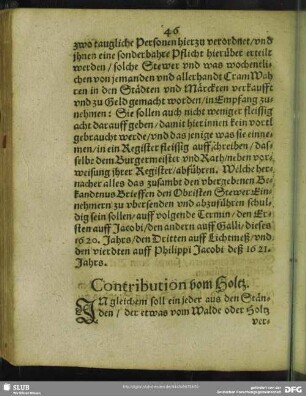 46
zwo taugliche Personen hierzu verordnet/vnd
jhnen eine sonderbahre Pflicht hierüber erteilt
werden/solche Stewer vnd was wochentli-
chen von jemanden vnd allerhandt Cram Wah
ren in den Städten vnd Märckten verkaufft
vnd zu Geld gemacht worden/in Empfang zu-
nehmen: Sie sollen auch nicht weniger fleissig
acht darauff geben/damit hierinnen kein vortl
gebraucht werde/vnd das jenige was sie einne-
men/in ein Register fleissig auffschreiben/das-
selbe dem Burgermeister vnd Rath/neben vor-
weisung jhrer Register/abführen. Welche her-
nacher alles das zusambt den vbergebenen Be-
kandtnus Brieffen den Obristen Stewer Ein-
nehmern zu vbersenden vnd abzuführen schul-
dig sein sollen/auff volgende Termin/den Er-
sten auff Jacobi/den andern auff Galli/dieses
1620. Jahrs/den Dritten auff Liechtmeß/vnd
den vierdten auff Philippi Jacobi deß 1621.
Jahrs.
Contribution vom Holtz.
IN gleichem soll ein jeder aus den Stän-
den/der etwas vom Walde oder Holtz
ver-
SLUB